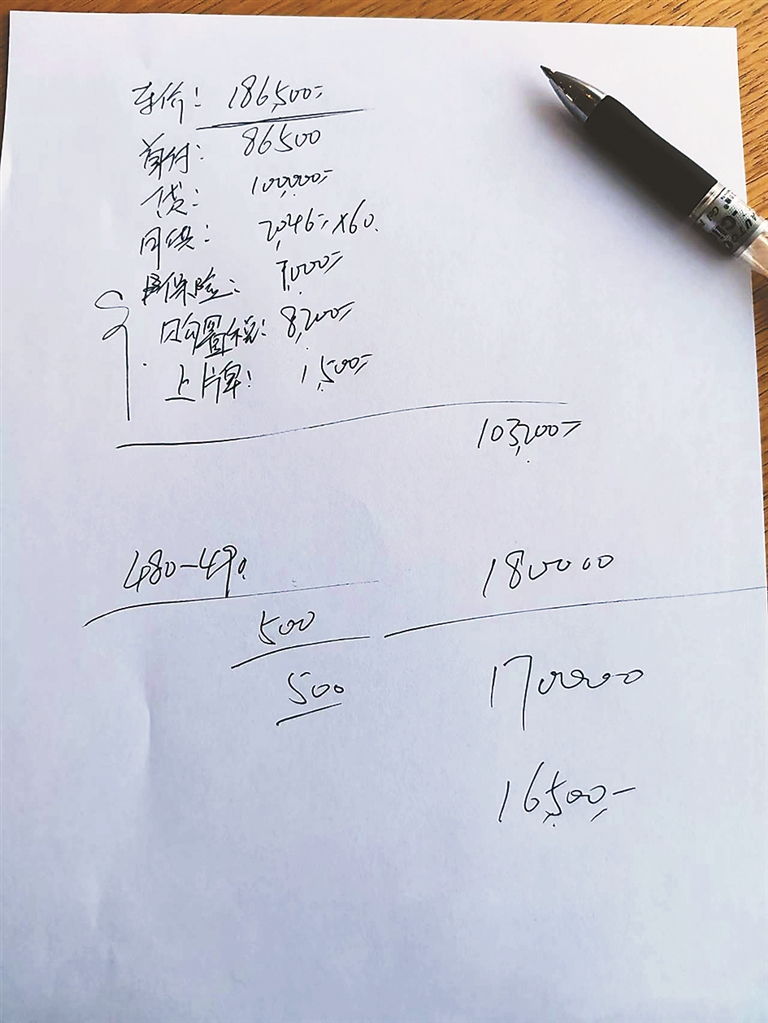 车价: 186,500-
首付: 86500
贷: 100,000-
月供: 2,046- ×60.
保险: 7,000-
购置税: 8,200-
上牌: 1,500-
103,200-
480-490 180000
500
500 170000
16,500,-